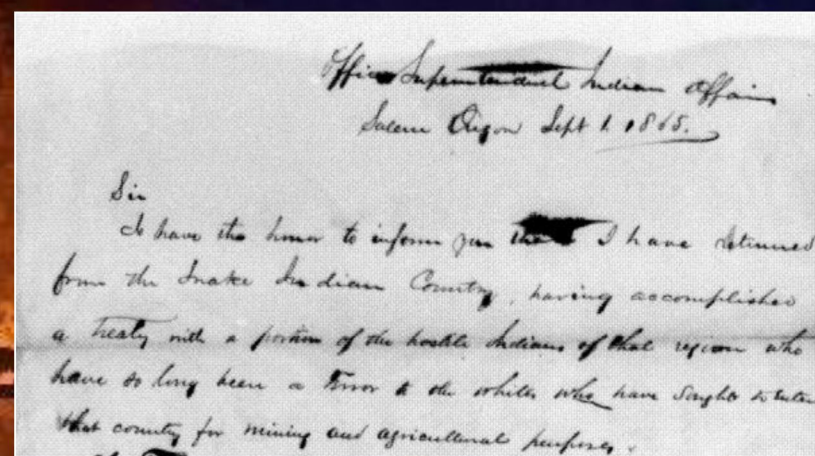 Office Superintendent Indian Affairs
Salem Oregon Sept 1. 1865.
Sir
I have the honor to inform you that I have returned
from the Snake Indian Country, having accomplished
a treaty with a portion of the hostile Indians of that region who
have so long been a terror to the whites who have sought to enter
that country for mining and agricultural purposes.